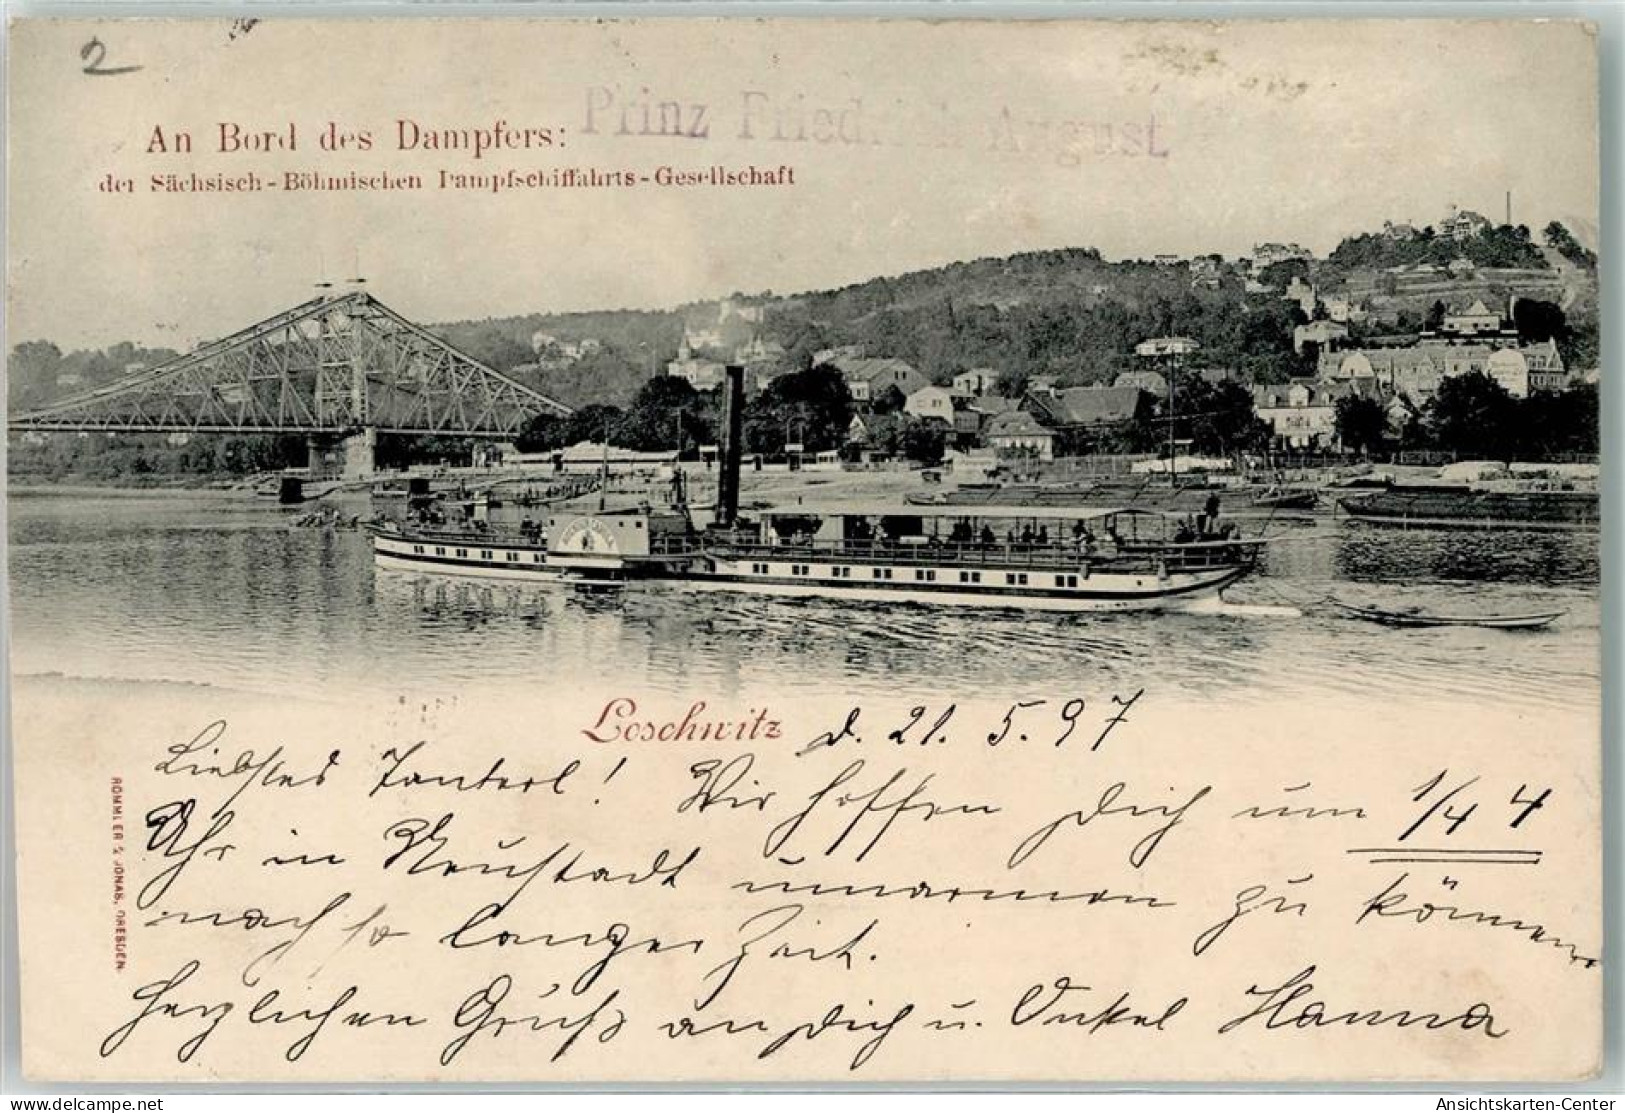 2
An Bord des Dampfers: Prinz Friedrich August
der Sächsisch-Böhmischen Dampfschiffahrts-Gesellschaft
Loschwitz d. 21. 5. 97
Liebstes Tanterl! Wir hoffen Dich um 1/4 4
Uhr in Neustadt umarmen zu können
nach so langer Zeit.
Herzlichen Gruß an Dich u. Onkel Hanna
RÖMMLER & JONAS, DRESDEN.
oldthing.de
Ansichtskarten-Center